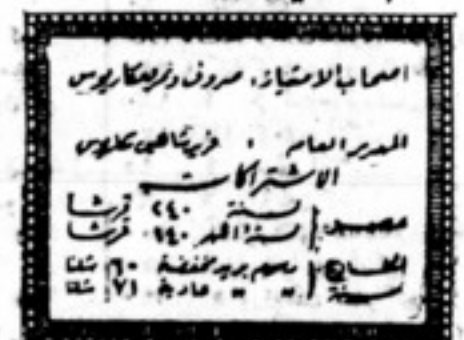 اصحاب الامتياز: صروف ونمر ومكاريوس
المدير العام: فريد شاهين مكاريوس
الاشتراكات
مصر سنة ٢٤٠ قرشا
١٤٠ قرشا
الخارج رسم بريد مخفضة ٦٠ شلنا
سنة " " عادية ٧١ شلنا